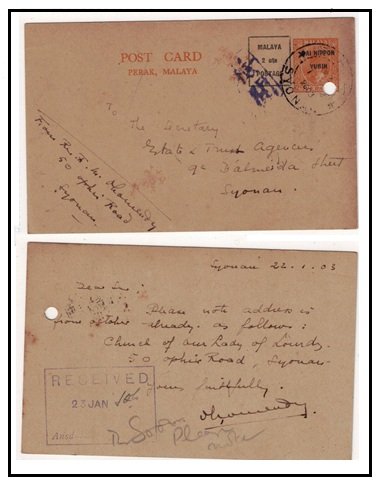 POST CARD
PERAK, MALAYA
MALAYA
2 cts
POSTAGE
DAI NIPPON
YUBIN
To
The Secretary
Estate & Trust Agencies
9a Dalmeida Street
Syonan.
50 Ophir Road
Syonan.
Syonan 22.1.03
Dear Sir:
Please note address is
already as follows:
Church of our Lady of Lourdes
50 Ophir Road, Syonan
yours faithfully.
RECEIVED
23 JAN
Please
note